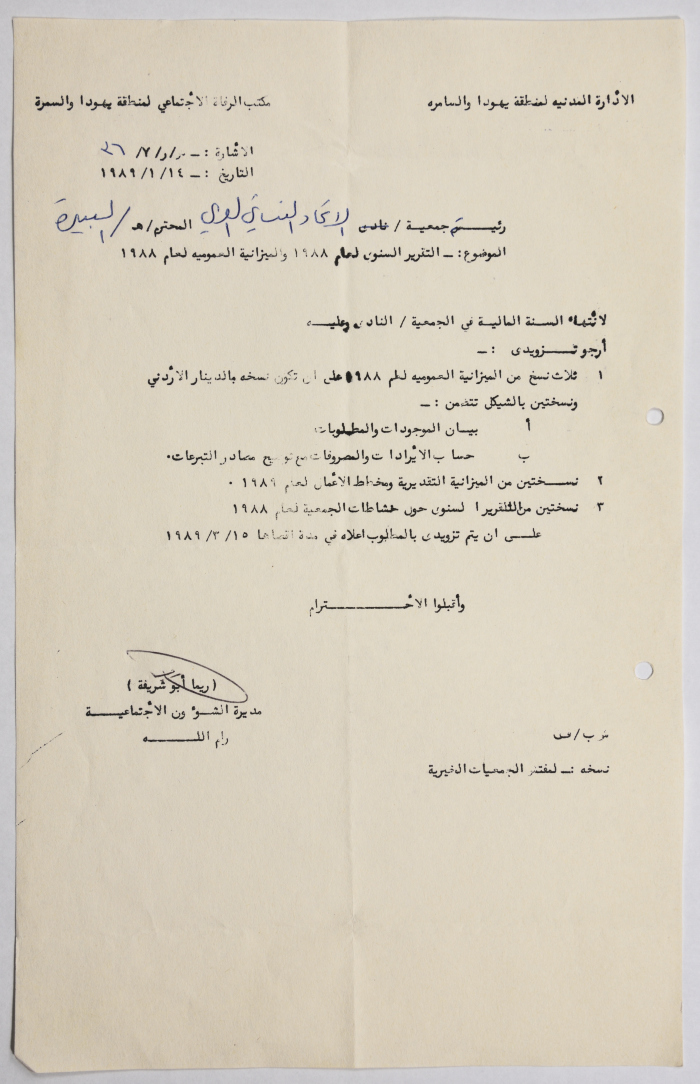 الأدارة المدنيه لمنطقة يهودا والسامره
مكتب الرفاة الأجتماعي لمنطقة يهودا والسمرة
الأشارة :ـ مر/ر/٧/ ٣٦
التاريخ :ـ ١٩٨٩/١/١٤
رئيســـة جمعية / الاتحاد النسائي العربي المحترم/هـ / البيرة
الموضوع :ـ التقرير السنوى لعام ١٩٨٨ والميزانية العموميه لعام ١٩٨٨
لأنتهاء السنة المالية في الجمعية / النادى وعليـه
أرجو تـــزويدى :ـ
١ ثلاث نسخ من الميزانية العموميه لعام ١٩٨٨ على ان تكون نسخه بالدينار الأردني
ونسختين بالشيكل تتضمن :ـ
أ بيان الموجودات والمطلوبات
ب حساب الأيرادات والمصروفات مع توضيح مصادر التبرعات٠
٢ نســختين من الميزانية التقديرية ومخطط الأعمال لعام ١٩٨٩ ٠
٣ نسختين من التقرير السنوى حول نشاطات الجمعية لعام ١٩٨٨
علــى ان يتم تزويدى بالمطلوب اعلاه في مدة اقصاها ١٩٨٩/٣/١٥
وأقبلوا الأحـــــــترام
(ريما أبو شريفة )
مديرة الشـــؤون الأجتماعيـــة
رام اللـــــه
نسخه :ـ لمفتش الجمعيات الخيرية